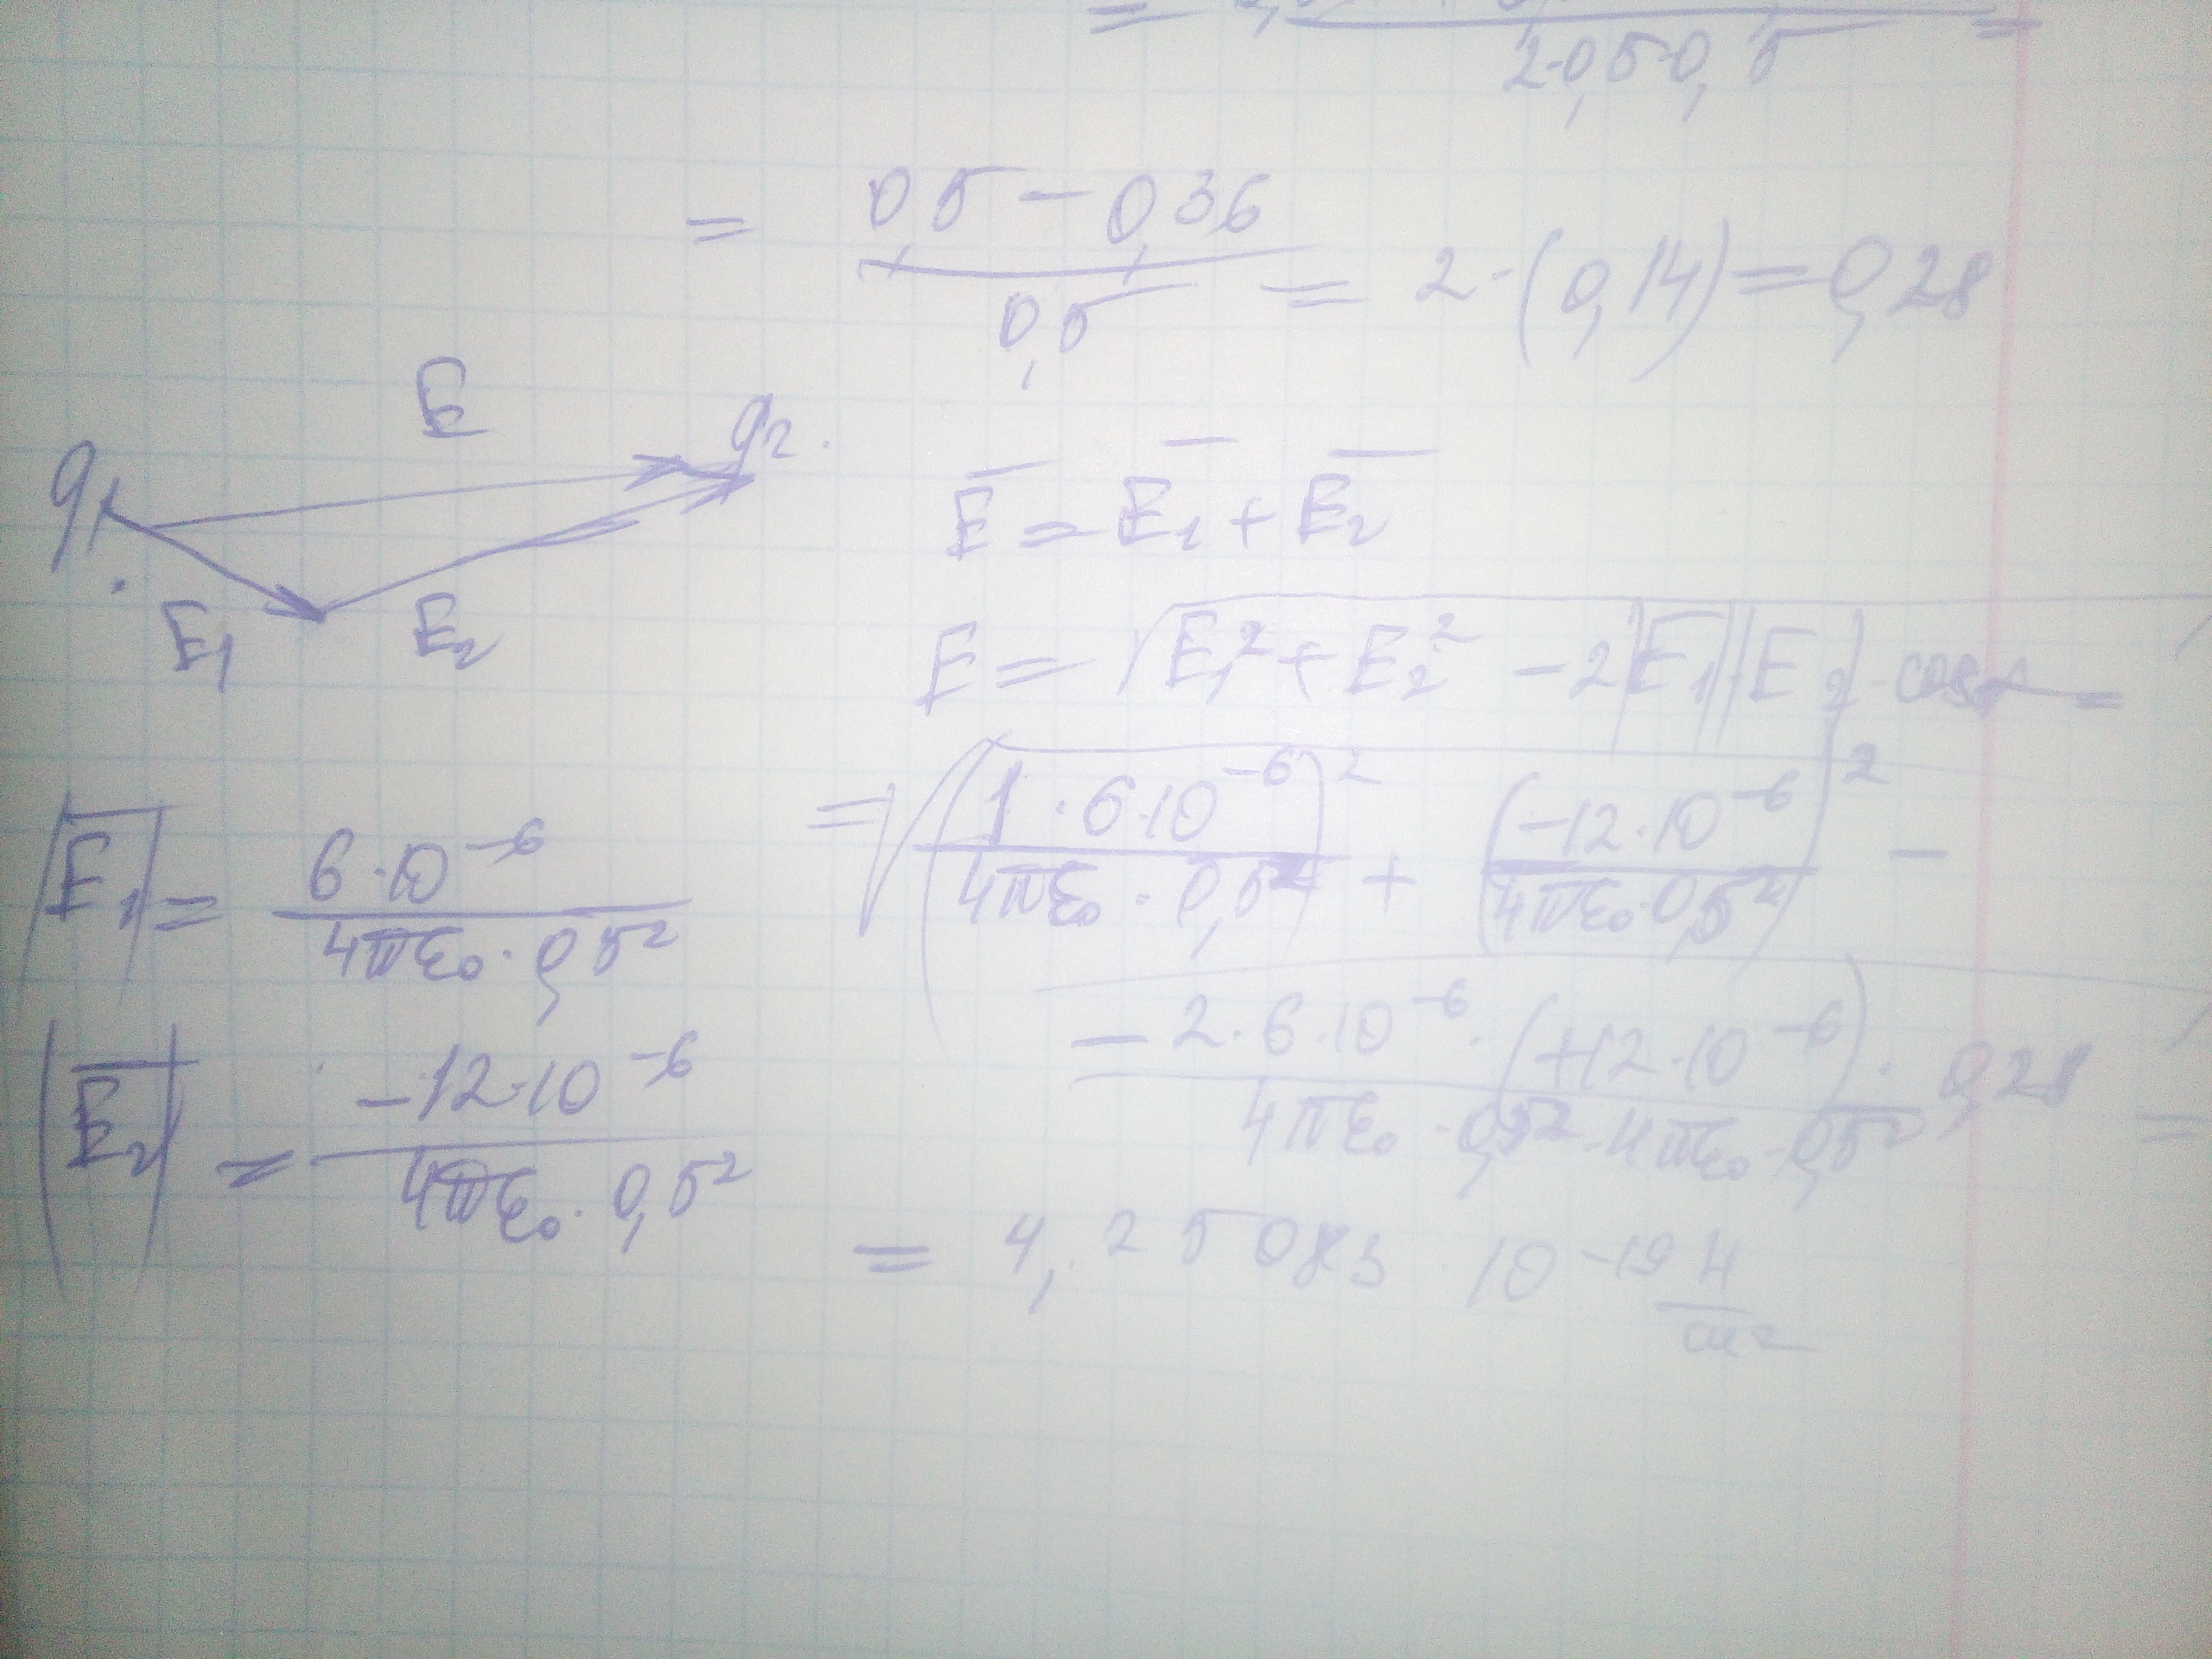 2·0,5·0,5
= (0,5 − 0,36)/0,5 = 2·(0,14) = 0,28
E
q1 q2
E1 E2
E̅ = E̅1 + E̅2
E = √(E1² + E2² − 2|E1||E2|·cosα) =
= √((1·6·10⁻⁶/(4πε0·0,5²))² + (−12·10⁻⁶/(4πε0·0,5²))² −
− 2·6·10⁻⁶·(+12·10⁻⁶)/(4πε0·0,5²·4πε0·0,5²)·0,28) =
|E̅1| = 6·10⁻⁶/(4πε0·0,5²)
|E̅2| = −12·10⁻⁶/(4πε0·0,5²)
= 4,25083·10⁻¹⁹ Н/м²